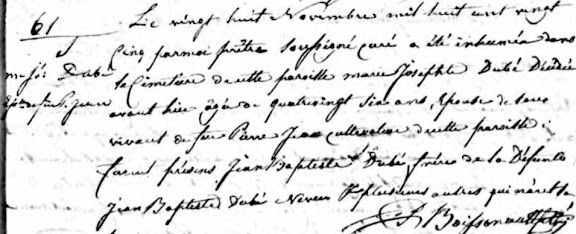 61
S
m. Jos. Dubé
Eps. de feu P. Jean
Le vingt huit Novembre mil huit cent vingt
cinq par moi prêtre soussigné curé a été inhumée dans
le Cimetière de cette paroisse marie Josephte Dubé Décédée
avant hier âgée de quatrevingt six ans, Epouse de son
vivant de feu Pierre Jean cultivateur de cette paroisse.
furent présens Jean Baptiste Dubé frère de la Défunte
Jean Baptiste Dubé Neveu & plusieurs autres qui n'ont
Boissonnault